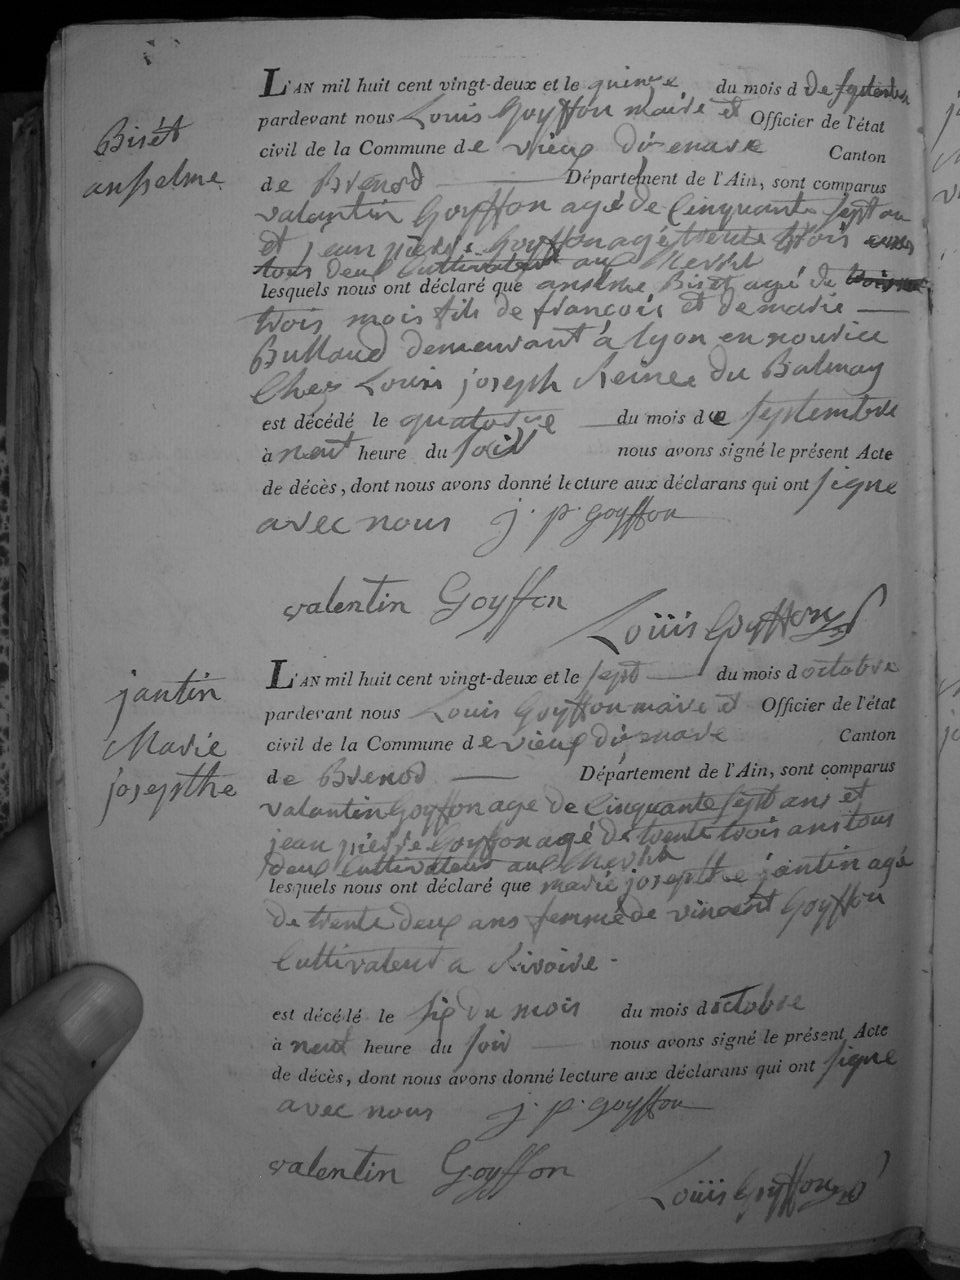 L'AN mil huit cent vingt-deux et le quinze du mois d De septembre
pardevant nous Louis Goyffon maire et Officier de l'état
Bisét
civil de la Commune de vieux d'izenave Canton
anselme
de Brénod Département de l'Ain, sont comparus
valantin Goyffon agé de Cinquante sept an
et jean pierre Goyffon agé trente trois
tous deux Cultivateur aux
lesquels nous ont déclaré que ansélme Biset agé de
trois mois fils de francois et de marie
Bulloud demeurant à lyon en nourice
Chez Louis joseph Reine du Balmay
est décédé le quatorze du mois de septembre
à neuf heure du soir nous avons signé le présent Acte
de décès, dont nous avons donné lecture aux déclarans qui ont signe
avec nous j. p. goyffon
valentin Goyffon
Loüis Goyffon
L'AN mil huit cent vingt-deux et le sept du mois d octobre
jantin
pardevant nous Louis Goyffon maire et Officier de l'état
Marie
civil de la Commune de vieux d'izenave Canton
josepthe
de Brenod Département de l'Ain, sont comparus
valantin Goyffon age de Cinquante sept ans et
jean pierre Goyffon agé de trente trois ans tous
deux Cultivateur aux
lesquels nous ont déclaré que marie josepthe jantin agé
de trente deux ans femme de vincent Goyffon
Cultivateur a Rivoire
est décédé le six du mois du mois d octobre
à neuf heure du soir nous avons signé le présent Acte
de décès, dont nous avons donné lecture aux déclarans qui ont signe
avec nous j. p. goyffon
valentin Goyffon
Loüis Goyffon